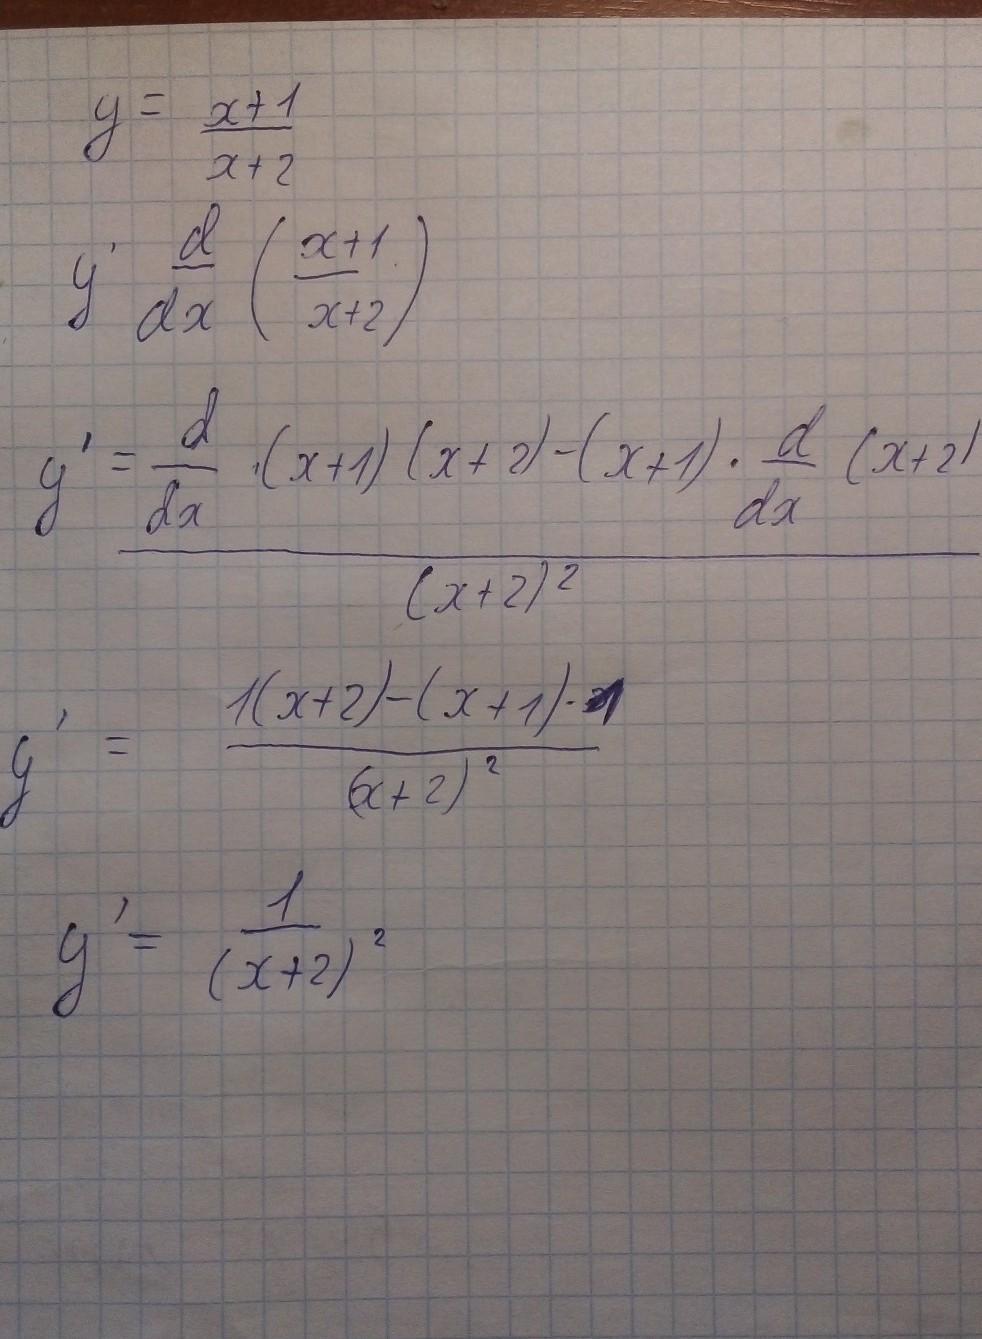 y = x+1 / x+2
y' d/dx (x+1 / x+2)
y' = d/dx ·(x+1)(x+2)-(x+1)· d/dx (x+2) / (x+2)²
y' = 1(x+2)-(x+1)·1 / (x+2)²
y' = 1 / (x+2)²